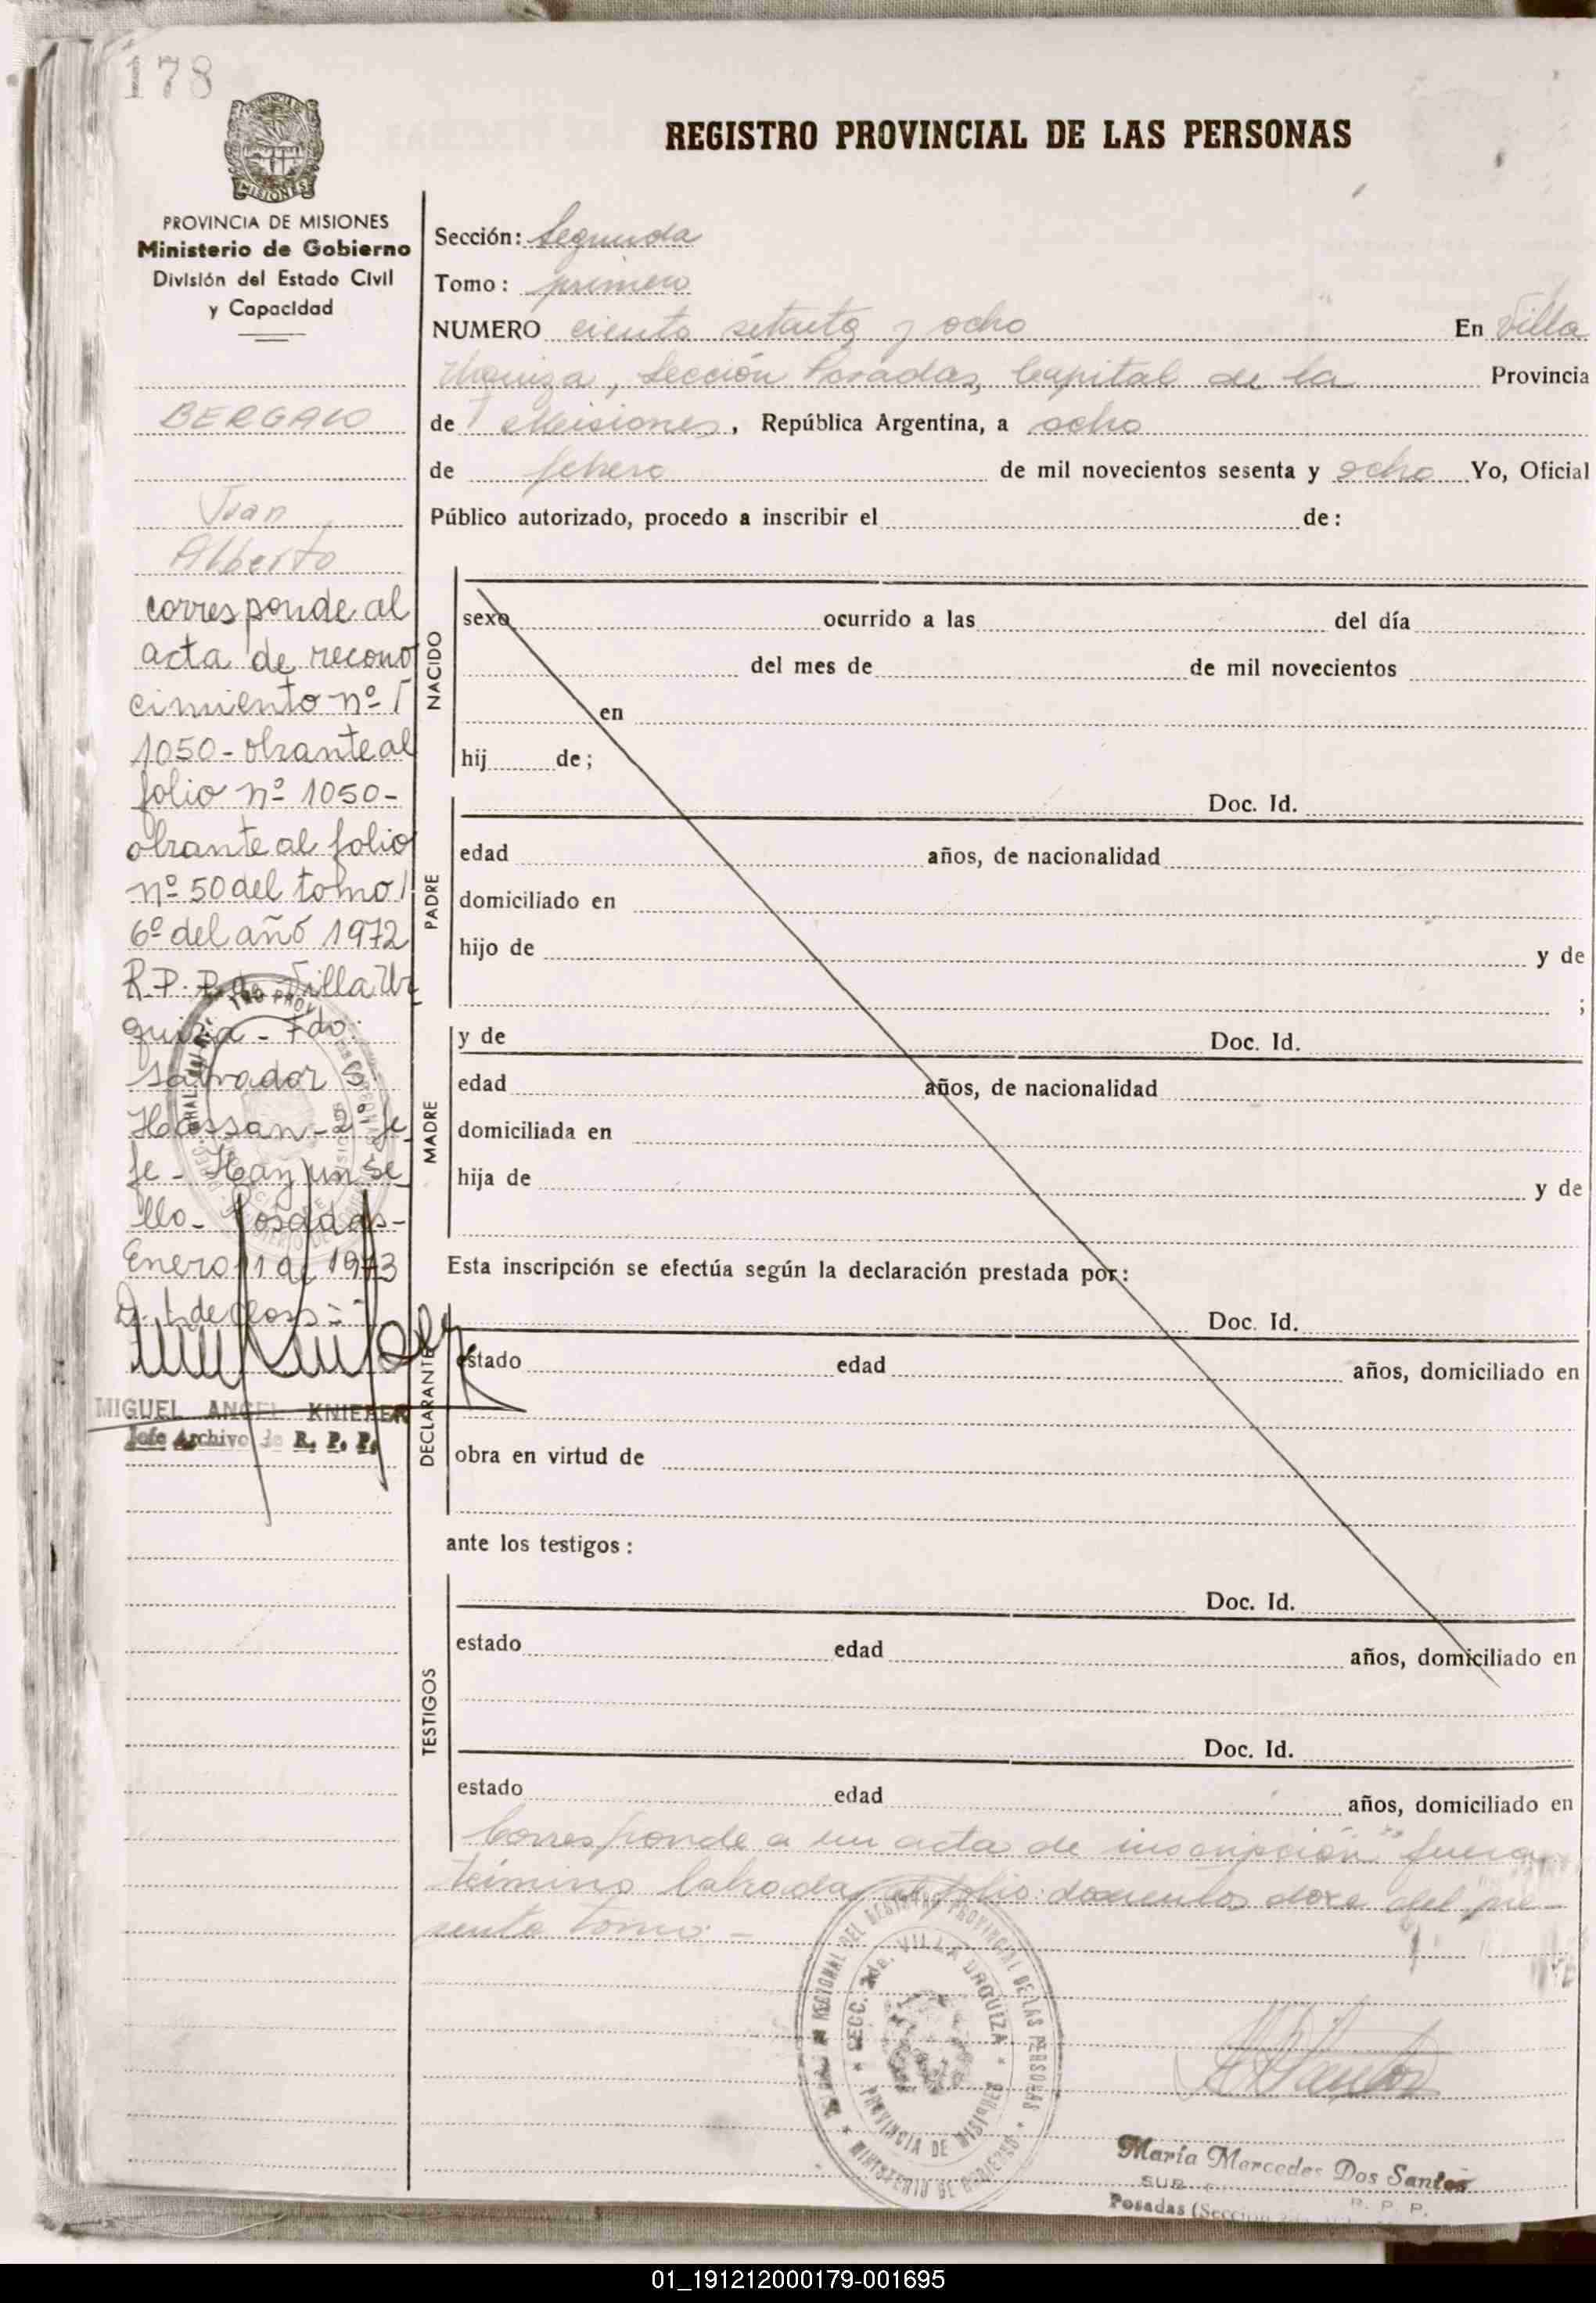 178
REGISTRO PROVINCIAL DE LAS PERSONAS
MISIONES
PROVINCIA DE MISIONES
Ministerio de Gobierno
División del Estado Civil
y Capacidad
BERGALO
Juan
Alberto
corresponde al
acta de recono
cimiento nº
1050 - obrante al
folio nº 1050 -
obrante al folio
nº 50 del tomo
6º del año 1972
R.P.P. de Villa Ur
quiza - Fdo:
Salvador
Hassan - 2º Je
fe - Hay un se
llo - Posadas -
Enero 11 de 1973
MIGUEL ANGEL KNIERER
Jefe Archivo de R. P. P.
Sección: Segunda
Tomo: primero
NUMERO ciento setenta y ocho En Villa
Urquiza, Sección Posadas, Capital de la Provincia
de Misiones, República Argentina, a ocho
de febrero de mil novecientos sesenta y ocho Yo, Oficial
Público autorizado, procedo a inscribir el de:
NACIDO
sexo ocurrido a las del día
del mes de de mil novecientos
en
hij de;
Doc. Id.
PADRE
edad años, de nacionalidad
domiciliado en
hijo de y de
;
y de Doc. Id.
MADRE
edad años, de nacionalidad
domiciliada en
hija de y de
Esta inscripción se efectúa según la declaración prestada por:
Doc. Id.
DECLARANTE
estado edad años, domiciliado en
obra en virtud de
ante los testigos:
Doc. Id.
TESTIGOS
estado edad años, domiciliado en
Doc. Id.
estado edad años, domiciliado en
Corresponde a un acta de inscripción fuera
término labrada al folio doscientos doce del pre
sente tomo. -
REGIONAL DEL REGISTRO PROVINCIAL DE LAS PERSONAS
SECC. 2da. VILLA URQUIZA
PROVINCIA DE MISIONES
MINISTERIO DE GOBIERNO
María Mercedes Dos Santos
SUB R. P. P.
Posadas (Sección
01_191212000179-001695